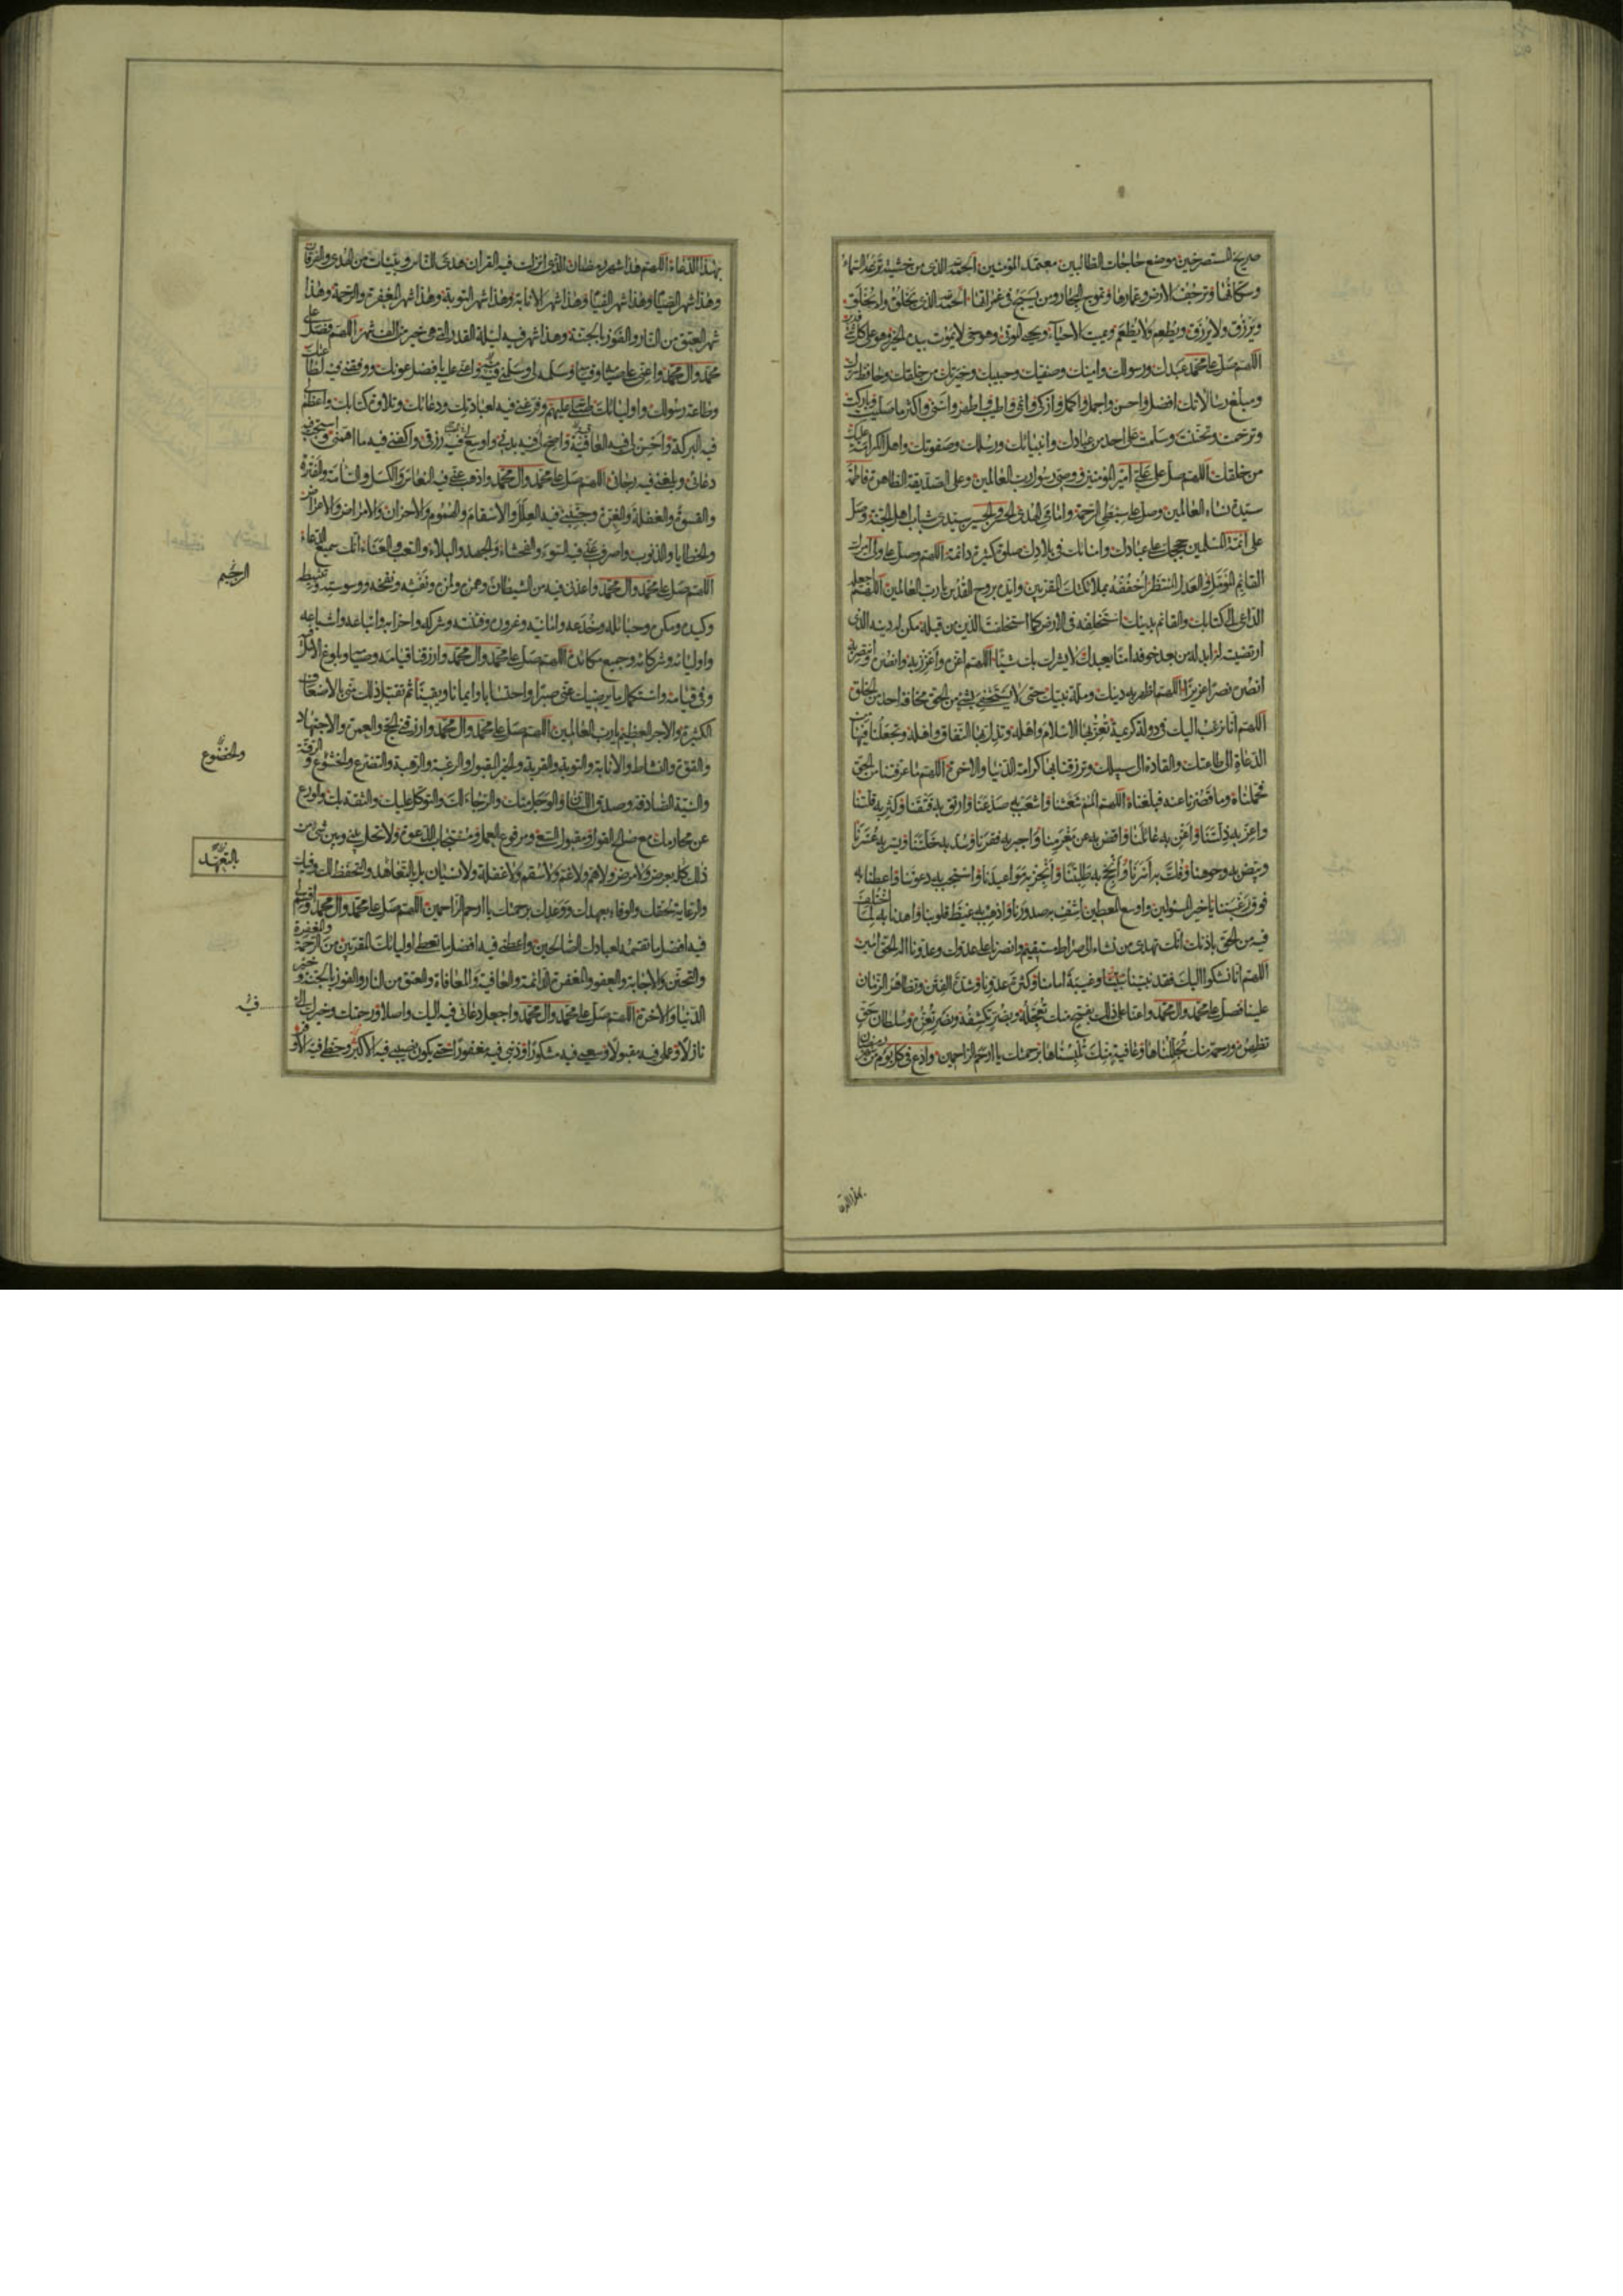 صريخ المستصرخين موضع حاجات الطالبين معتمد المؤمنين الحمد لله الذي من خشيته ترعد السماء
وسكانها وترجف الارض وعمارها وتموج البحار ومن يسبح في غمراتها الحمد لله الذي يخلق ولم يخلق
ويرزق ولا يرزق ويطعم ولا يطعم ويميت الاحياء ويحيي الموتى وهو حي لا يموت بيده الخير وهو على كل شئ قدير
اللهم صل على محمد عبدك ورسولك وامينك وصفيك وحبيبك وخيرتك من خلقك وحافظ سرك
ومبلغ رسالاتك افضل واحسن واجمل واكمل وازكى وانمى واطيب واطهر واسنى واكثر ما صليت وباركت
وترحمت وتحننت وسلمت على احد من عبادك وانبيائك ورسلك وصفوتك واهل الكرامة عليك
من خلقك اللهم صل على علي امير المؤمنين ووصي رسول رب العالمين وعلى الصديقة الطاهرة فاطمة
سيدة نساء العالمين وصل على سبطي الرحمة وامامي الهدى الحسن والحسين سيدي شباب اهل الجنة وصل
على ائمة المسلمين حججك على عبادك وامنائك في بلادك صلوة كثيرة دائمة اللهم وصل على ولي امرك
القائم المؤمل والعدل المنتظر احففه بملائكتك المقربين وايده بروح القدس يا رب العالمين اللهم اجعله
الداعي الى كتابك والقائم بدينك استخلفه في الارض كما استخلفت الذين من قبله مكن له دينه الذي
ارتضيته له ابدله من بعد خوفه امنا يعبدك لا يشرك بك شيئا اللهم اعزه واعزز به وانصره وانتصر به
انصره نصرا عزيزا اللهم اظهر به دينك وملة نبيك حتى لا يستخفي بشئ من الحق مخافة احد من الخلق
اللهم انا نرغب اليك في دولة كريمة تعز بها الاسلام واهله وتذل بها النفاق واهله وتجعلنا فيها من
الدعاة الى طاعتك والقادة الى سبيلك وترزقنا بها كرامة الدنيا والاخرة اللهم ما عرفتنا من الحق
فحملناه وما قصرنا عنه فبلغناه اللهم المم به شعثنا واشعب به صدعنا وارتق به فتقنا وكثر به قلتنا
واعز به ذلتنا واغن به عائلنا واقض به عن مغرمنا واجبر به فقرنا وسد به خلتنا ويسر به عسرنا
وبيض به وجوهنا وفك به اسرنا وانجح به طلبتنا وانجز به مواعيدنا واستجب به دعوتنا واعطنا به
فوق رغبتنا يا خير المسئولين واوسع المعطين اشف به صدورنا واذهب به غيظ قلوبنا واهدنا به لما اختلف
فيه من الحق باذنك انك تهدي من تشاء الى صراط مستقيم وانصرنا على عدوك وعدونا اله الحق امين
اللهم انا نشكوا اليك فقد نبينا وغيبة امامنا وكثرة عدونا وشدة الفتن وتظاهر الزمان
علينا فصل على محمد وال محمد واعنا على ذلك بفتح منك تعجله وبضر تكشفه ونصر تعزه وسلطان حق
تظهره ورحمة منك تجللناها وعافية منك تلبسناها برحمتك يا ارحم الراحمين وادع في كل يوم من شهر رمضان
بهذا الدعاء اللهم هذا شهر رمضان الذي انزلت فيه القران هدى للناس وبينات من الهدى والفرقان
وهذا شهر الصيام وهذا شهر القيام وهذا شهر الانابة وهذا شهر التوبة وهذا شهر المغفرة والرحمة وهذا
شهر العتق من النار والفوز بالجنة وهذا شهر فيه ليلة القدر التي هي خير من الف شهر اللهم فصل على
محمد وال محمد واعني على صيامه وقيامه وسلمه لي وسلمني فيه واعني عليه بافضل عونك ووفقني فيه لطاعتك
وطاعة رسولك واوليائك صلى الله عليهم وفرغني فيه لعبادتك ودعائك وتلاوة كتابك واعظم لي
فيه البركة واحسن لي فيه العاقبة واصح فيه بدني واوسع فيه رزقي واكفني فيه ما اهمني واستجب فيه
دعائي وبلغني فيه رجائي اللهم صل على محمد وال محمد واذهب عني فيه النعاس والكسل والسامة والفترة
والقسوة والغفلة والغرة وجنبني فيه العلل والاسقام والهموم والاحزان والاعراض والامراض
والخطايا والذنوب واصرف عني فيه السوء والفحشاء والجهد والبلاء والتعب والعناء انك سميع الدعاء
اللهم صل على محمد وال محمد واعذني فيه من الشيطان وهمزه ولمزه ونفثه ونفخه ووسوسته وتثبيطه
الرجيم
وكيده ومكره وحبائله وخدعه وامانيه وغروره وفتنته وشركه واحزابه واتباعه واشياعه
واوليائه وشركائه وجميع مكائده اللهم صل على محمد وال محمد وارزقنا قيامه وصيامه وبلوغ الامل فيه
وفي قيامه واستكمال ما يرضيك عني صبرا واحتسابا وايمانا ويقينا ثم تقبل ذلك مني بالاضعاف
الكثيرة والاجر العظيم يا رب العالمين اللهم صل على محمد وال محمد وارزقني الحج والعمرة والاجتهاد
والقوة والنشاط والانابة والتوبة والقربة والخير المقبول والرغبة والرهبة والتضرع والخشوع والرقة
والخضوع
والنية الصادقة وصدق اللسان والوجل منك والرجاء لك والتوكل عليك والثقة بك والورع
عن محارمك مع صالح القول ومقبول السعي ومرفوع العمل ومستجاب الدعوة ولا تحل بيني وبين شئ من
ذلك كله بعرض ولا مرض ولا هم ولا غم ولا سقم ولا غفلة ولا نسيان بل بالتعاهد والتحفظ لك وفيك
بالتعهد
والرعاية لحقك والوفاء بعهدك ووعدك برحمتك يا ارحم الراحمين اللهم صل على محمد وال محمد واقسم لي
فيه افضل ما تقسمه لعبادك الصالحين واعطني فيه افضل ما تعطي اوليائك المقربين من الرحمة والمغفرة
والتحنن والاجابة والعفو والمغفرة الدائمة والعافية والمعافاة والعتق من النار والفوز بالجنة وخير
الدنيا والاخرة اللهم صل على محمد وال محمد واجعل دعائي فيه اليك واصلا ورحمتك وخيرك الي
فيه
نازلا وعملي فيه مقبولا وسعيي فيه مشكورا وذنبي فيه مغفورا حتى يكون نصيبي فيه الاكبر وحظي فيه الاوفر